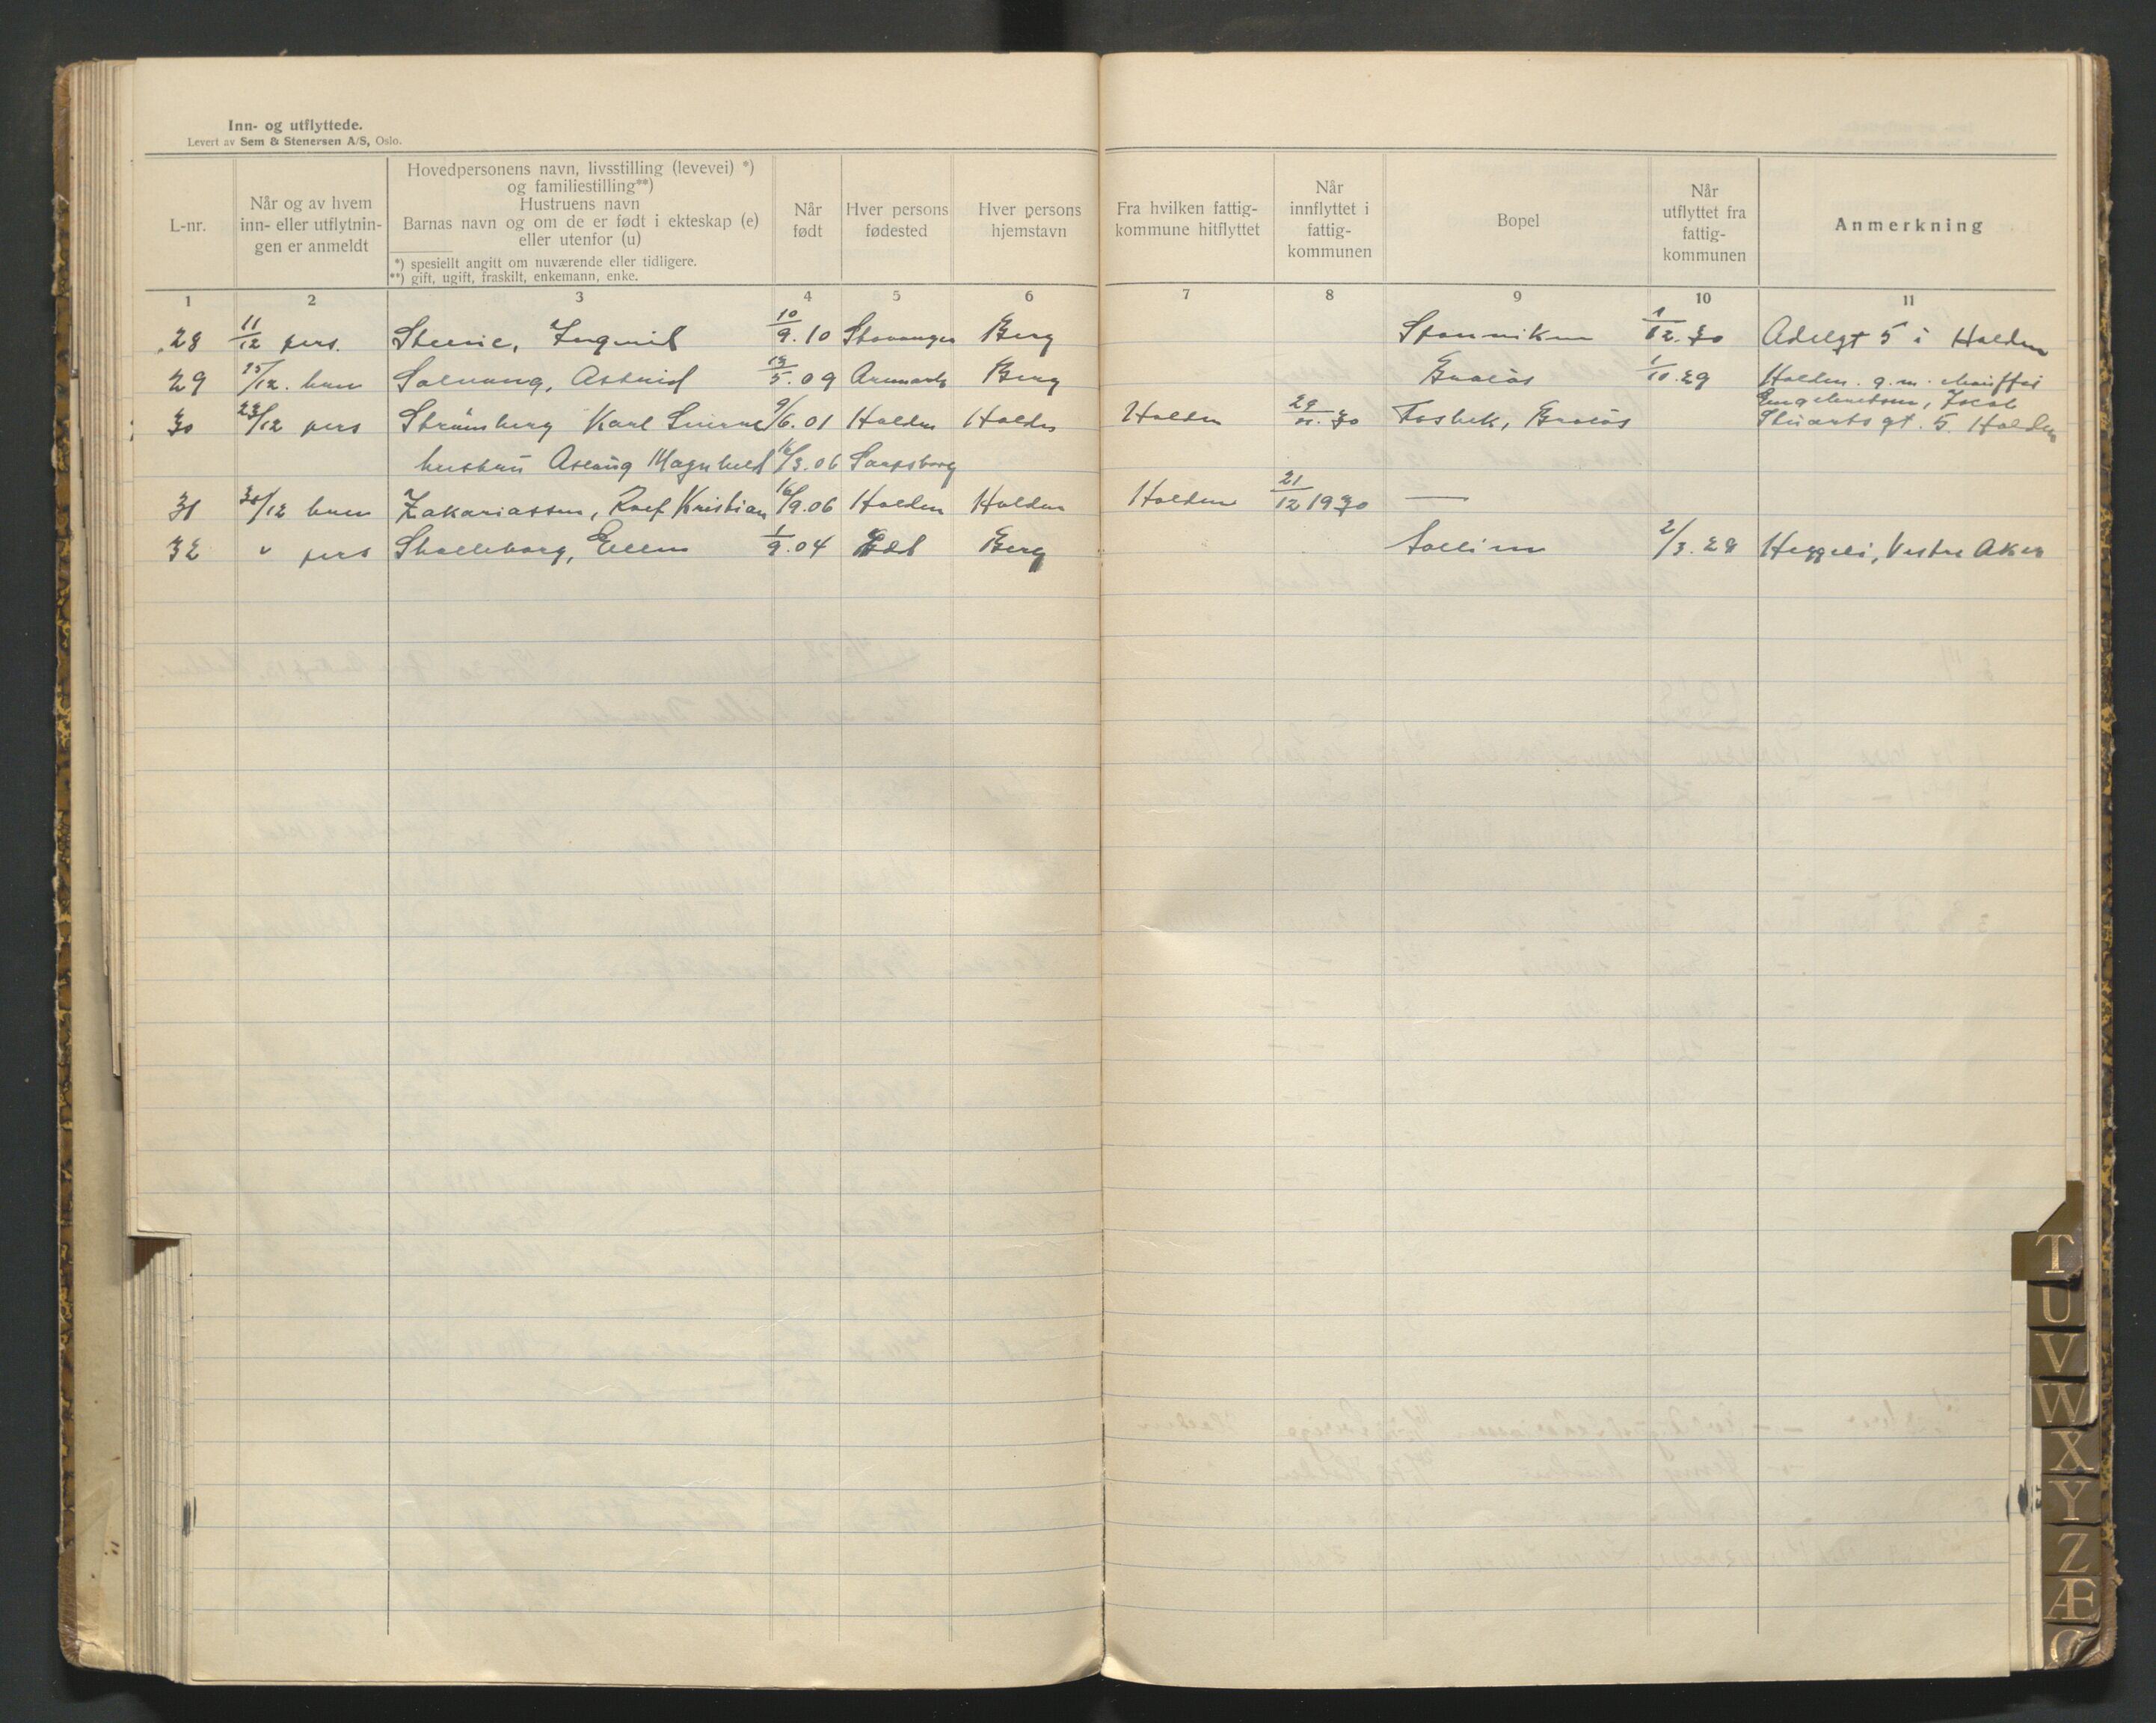 Inn- og utflyttede.
Levert av Sem & Stenersen A/S, Oslo.
L-nr.
Når og av hvem
inn- eller utflytnin-
gen er anmeldt
Hovedpersonens navn, livsstilling (levevei) *)
og familiestilling**)
Hustruens navn
Barnas navn og om de er født i ekteskap (e)
eller utenfor (u)
*) spesiellt angitt om nuværende eller tidligere.
**) gift, ugift, fraskilt, enkemann, enke.
Når
født
Hver persons
fødested
Hver persons
hjemstavn
Fra hvilken fattig-
kommune hitflyttet
Når
innflyttet i
fattig-
kommunen
Bopel
Når
utflyttet fra
fattig-
kommunen
Anmerkning
1 2 3 4 5 6 7 8 9 10 11
28 11/12 pers. Ingrid 10/9.10 Stavanger Berg 1/12.30 Adelgt 5 i Halden
29 15/12. Solvang, Astrid 5.09 Aremark Berg Braeås 1/10.29 Halden. g.m. chauffør
Engebretsen, Jacob
30 23/12 pers Strømberg Karl 9/6.01 Halden Halden Halden 29/11.30 Fosbek, Braeås Stuartsgt. 5. Halden
hustru Aslaug Magnhild 3.06 Sarpsborg
31 30/12 Zakariassen, Rolf Kristian 16/9.06 Halden Halden Halden 21/12 1930 —
32 " pers Skalleborg, Ellen 1/9.04 Berg Sollien 2/3.28 Heggeli, Vestre Aker
T
U
V
W
X
Y
Z
Æ